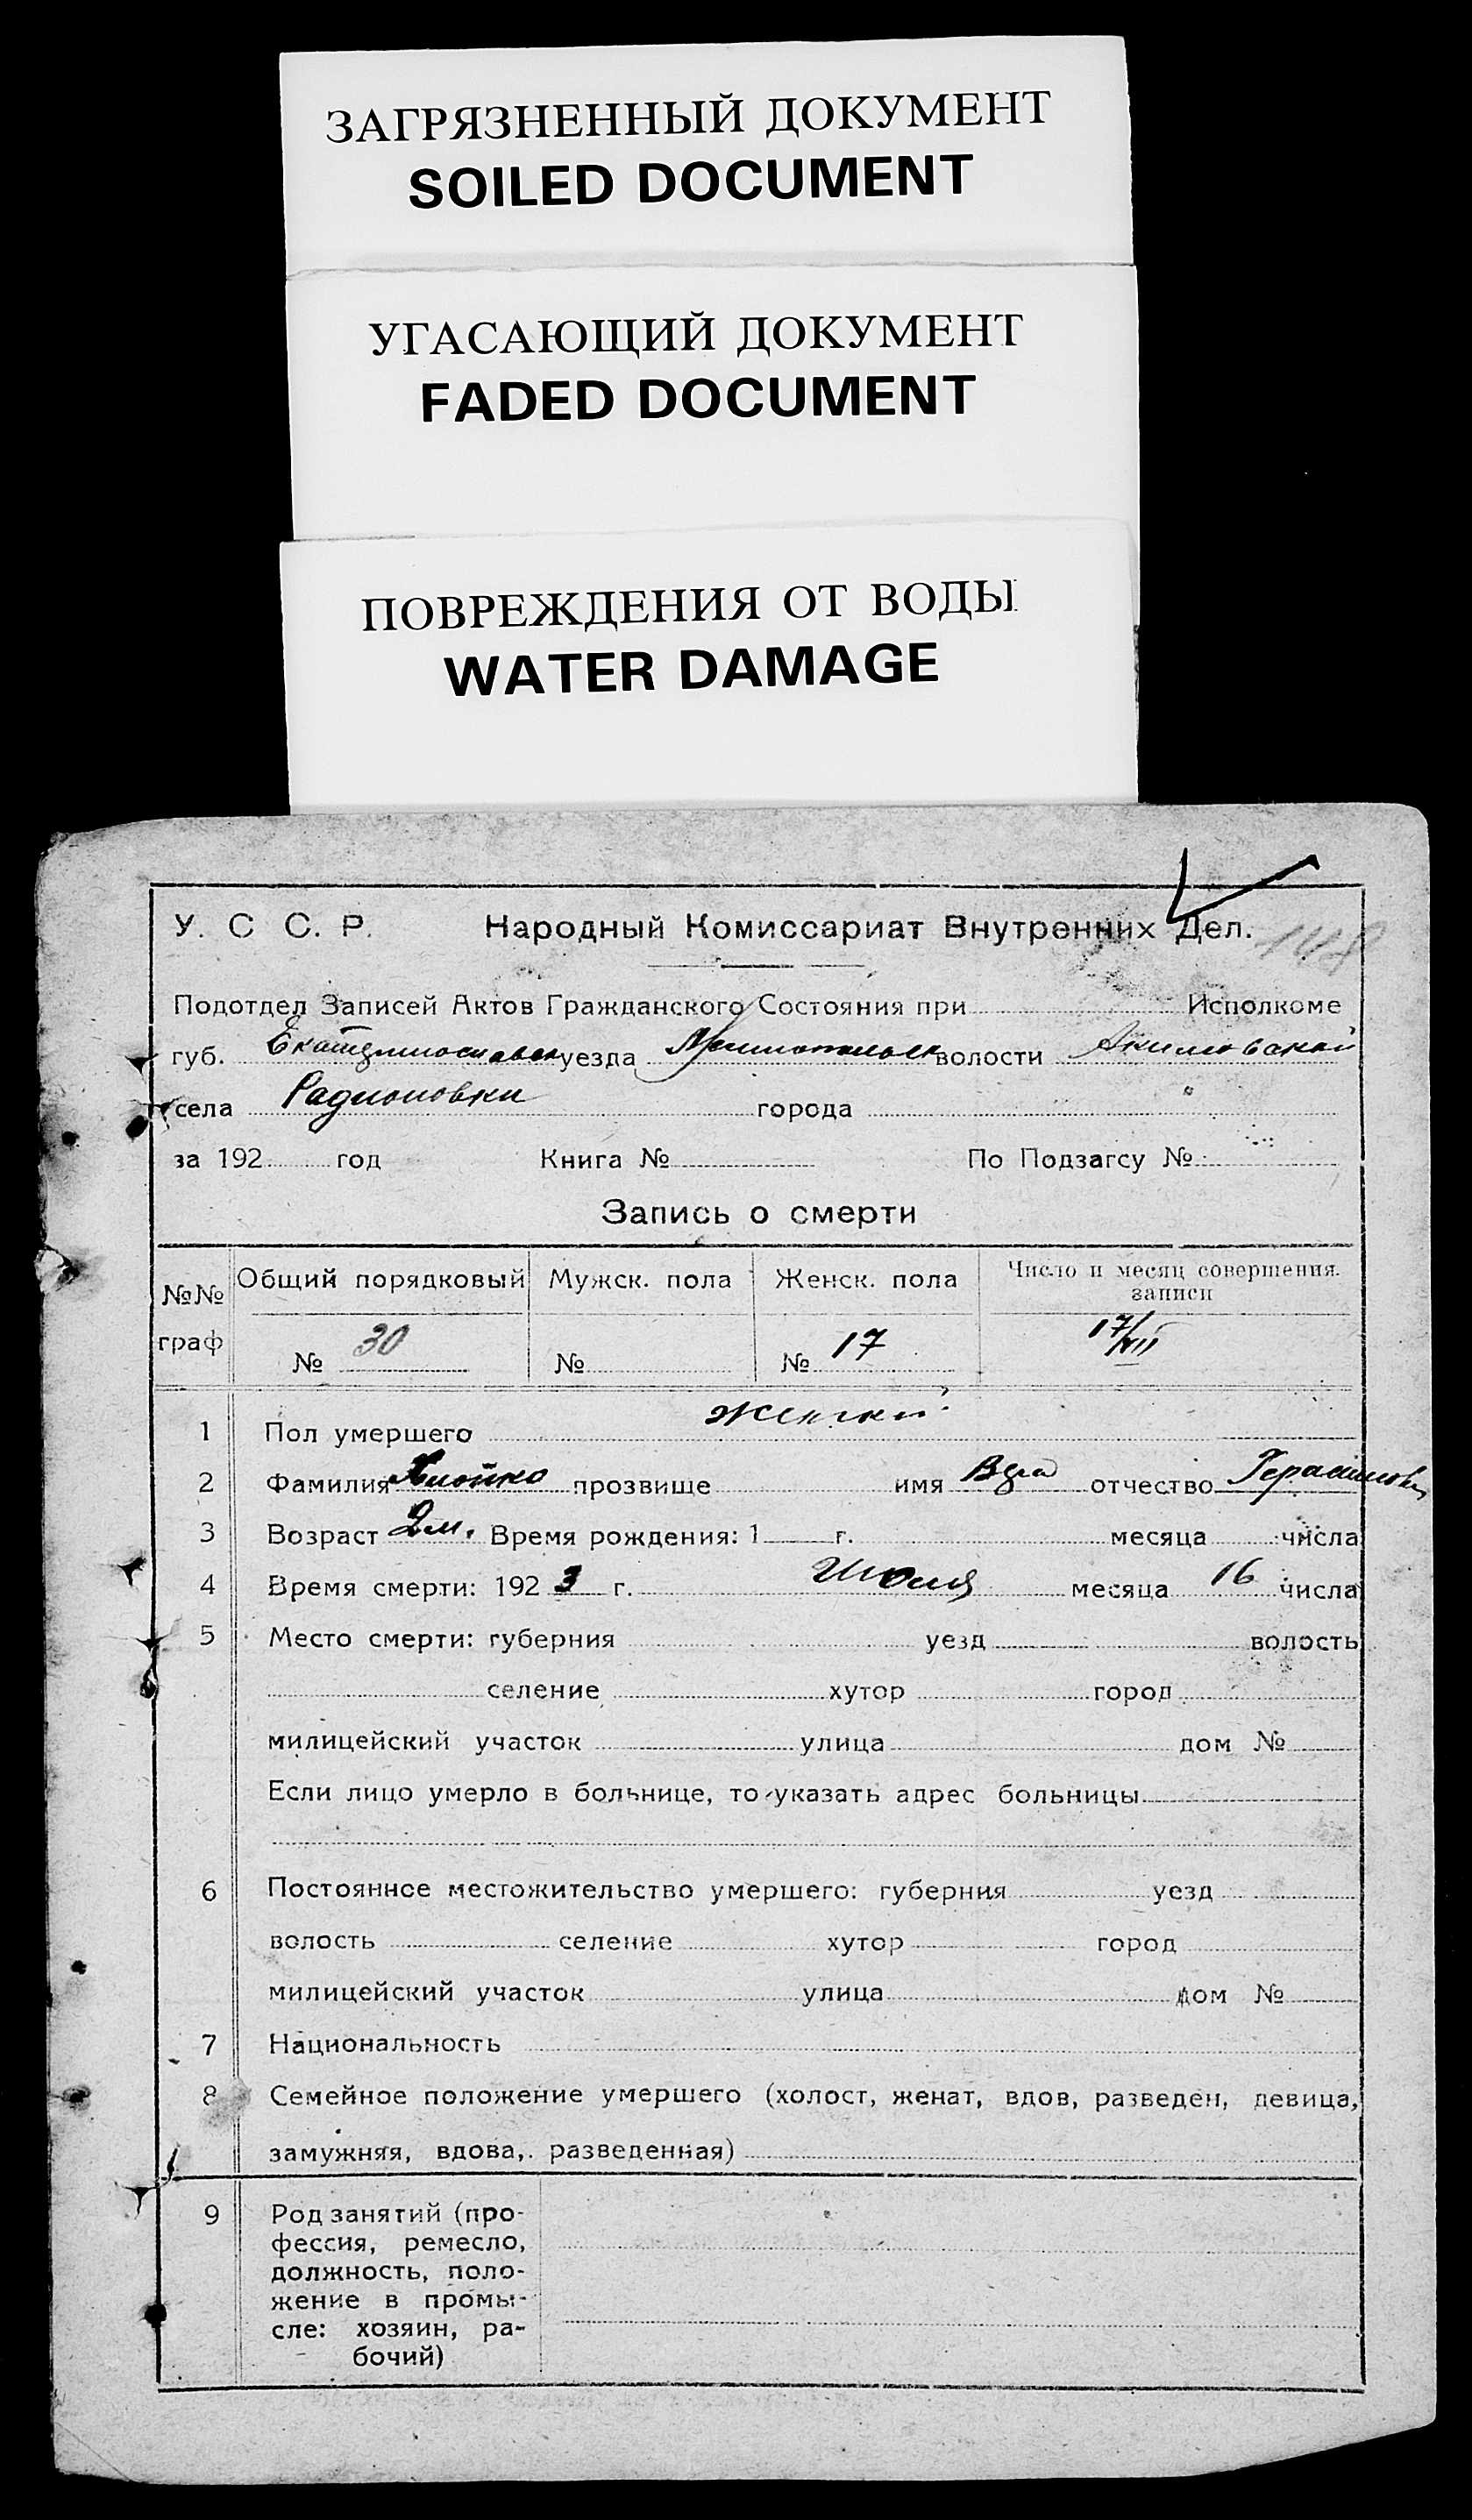 ЗАГРЯЗНЕННЫЙ ДОКУМЕНТ
SOILED DOCUMENT
УГАСАЮЩИЙ ДОКУМЕНТ
FADED DOCUMENT
ПОВРЕЖДЕНИЯ ОТ ВОДЫ
WATER DAMAGE
У. С С. Р. Народный Комиссариат Внутренних Дел.
148
Подотдел Записей Актов Гражданского Состояния при Исполкоме
губ. уезда волости Акимовской
села Радионовки города
за 192 год Книга № По Подзагсу №
Запись о смерти
№№ граф Общий порядковый Мужск. пола Женск. пола Число и месяц совершения записи
№ 30 № № 17 17/VII
1 Пол умершего женский
2 Фамилия прозвище имя отчество
3 Возраст 2 м. Время рождения: 1 г. месяца числа
4 Время смерти: 192 3 г. Июля месяца 16 числа
5 Место смерти: губерния уезд волость
селение хутор город
милицейский участок улица дом №
Если лицо умерло в больнице, то указать адрес больницы
6 Постоянное местожительство умершего: губерния уезд
волость селение хутор город
милицейский участок улица дом №
7 Национальность
8 Семейное положение умершего (холост, женат, вдов, разведен, девица,
замужняя, вдова, разведенная)
9 Род занятий (про-
фессия, ремесло,
должность, поло-
жение в промы-
сле: хозяин, ра-
бочий)